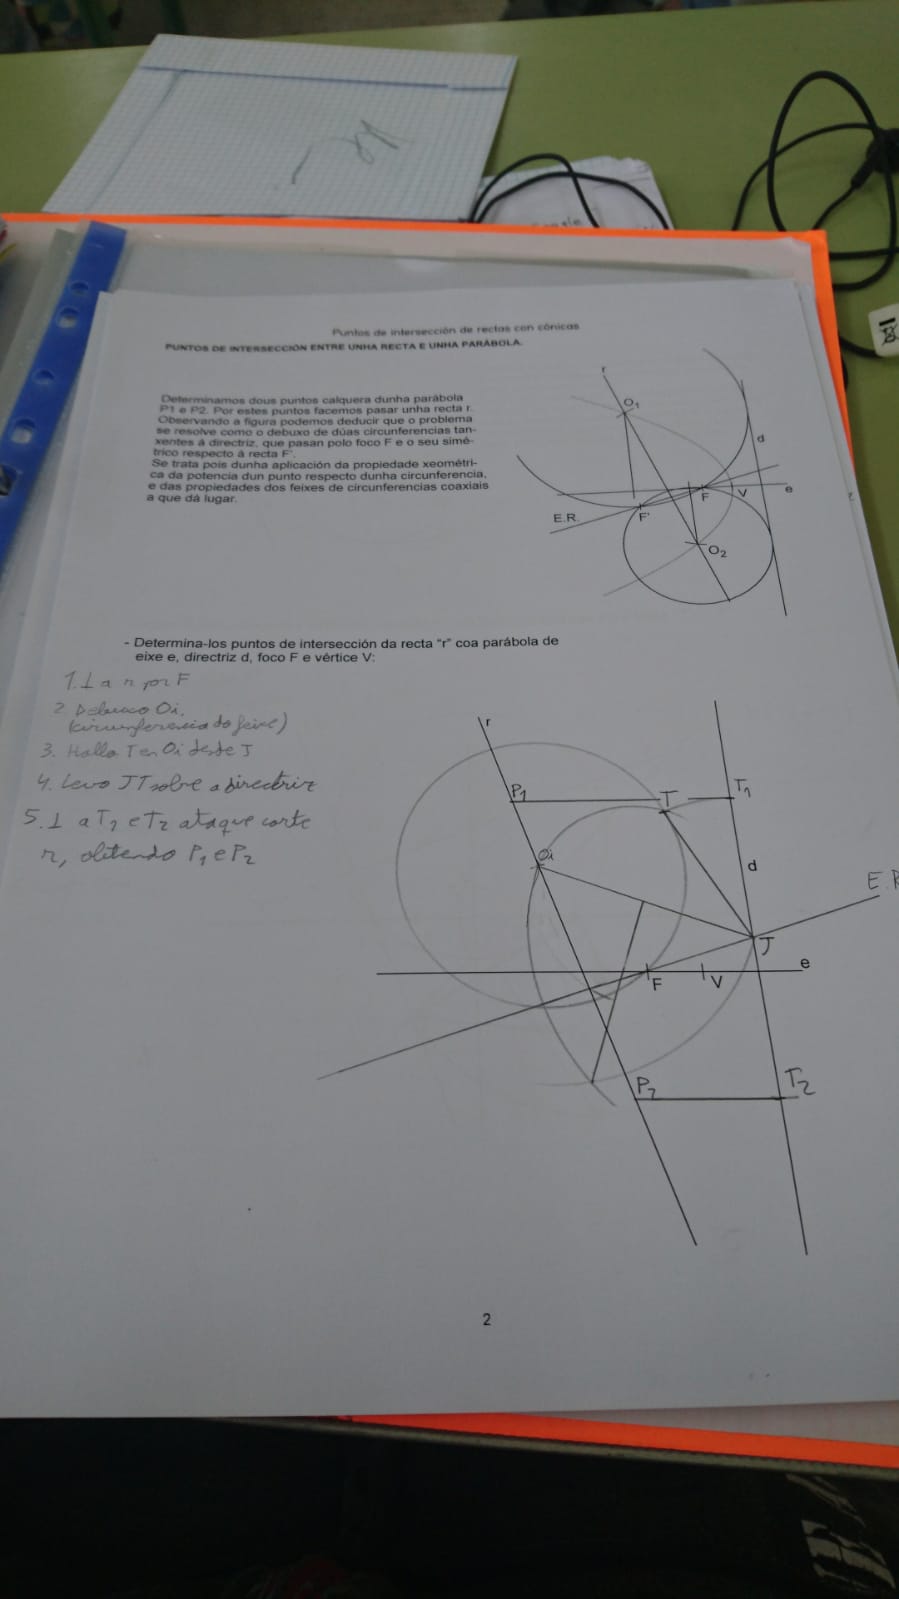 Puntos de intersección de rectas con cónicas
PUNTOS DE INTERSECCIÓN ENTRE UNHA RECTA E UNHA PARÁBOLA.
Determinamos dous puntos calquera dunha parábola
P1 e P2. Por estes puntos facemos pasar unha recta r.
Observando a figura podemos deducir que o problema
se resolve como o debuxo de dúas circunferencias tan-
xentes á directriz, que pasan polo foco F e o seu simé-
trico respecto á recta F'.
Se trata pois dunha aplicación da propiedade xeométri-
ca da potencia dun punto respecto dunha circunferencia,
e das propiedades dos feixes de circunferencias coaxiais
a que dá lugar.
r
O1
d
F
V
e
E.R.
F'
O2
- Determina-los puntos de intersección da recta "r" coa parábola de
eixe e, directriz d, foco F e vértice V:
1. ⊥ a r por F
2. Debuxo Oi.
(circunferencia do feixe)
3. Hallo T en Oi desde J
4. Levo JT sobre a directriz
5. ⊥ a T1 e T2 ata que corte
r, obtendo P1 e P2
r
P1
T
T1
Oi
d
E.R
J
e
F
V
P2
T2
2